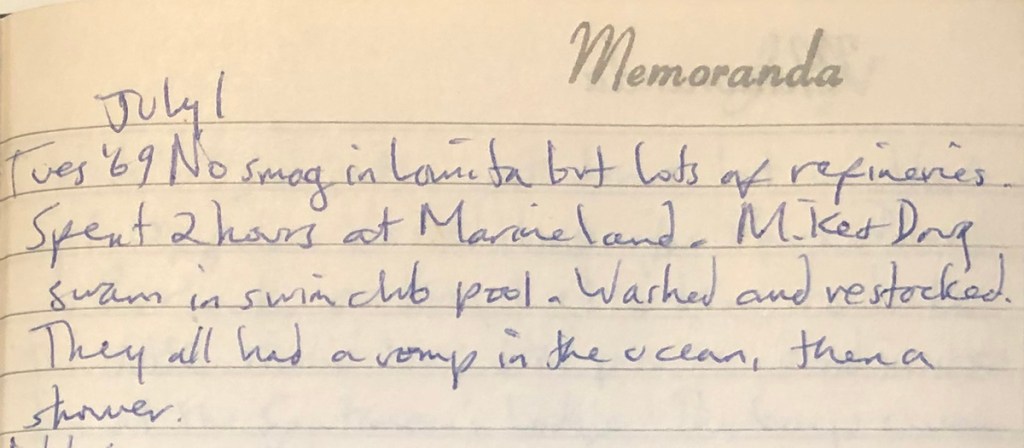 Memoranda
July 1
Tues '69 No smog in Lomita but lots of refineries.
Spent 2 hours at Marineland. Mike + Doug
swam in swim club pool. Washed and restocked.
They all had a romp in the ocean, then a
shower.